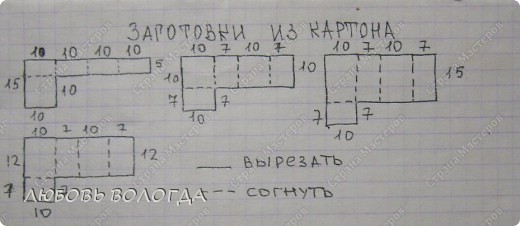 ЗАГОТОВКИ ИЗ КАРТОНА
10 10 10 10
5
15
10
10
10 7 10 7
10
10
7 7
10
10 7 10 7
15
7 7
10
10 7 10 7
12
12
7 7
10
ВЫРЕЗАТЬ
СОГНУТЬ
ЛЮБОВЬ ВОЛОГДА
Страна Мастеров